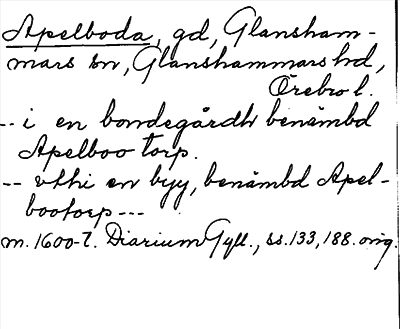 Apelboda, gd, Glansham-
mars sn, Glanshammars hd,
Örebro l.
-- i en bondegårdh benämbd
Apelboo torp.
-- vthi en byy, benämbd Apel-
bootorp ---
m. 1600-t. Diarium Gyll., ss. 133, 188. orig.